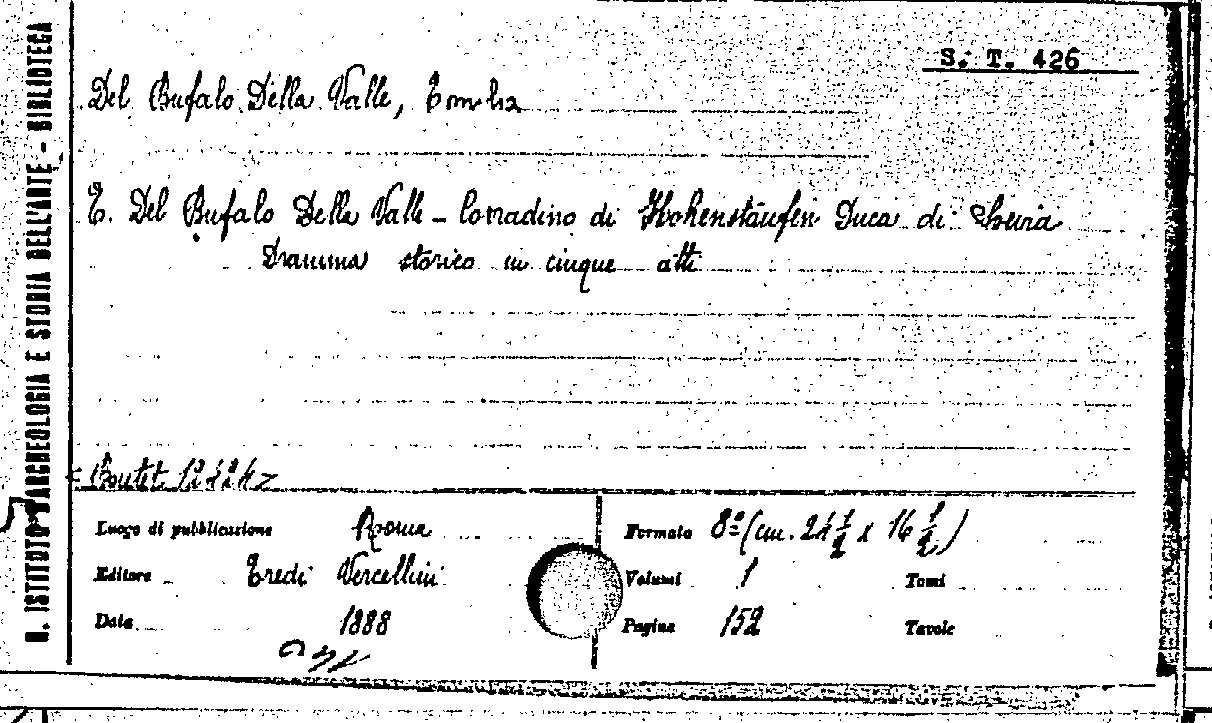 S. T. 426
Del Bufalo Della Valle, Emilia
E. Del Bufalo Della Valle - Corradino di Hohenstäufen Duca di Svevia
Dramma storico in cinque atti
R. ISTITUTO D'ARCHEOLOGIA E STORIA DELL'ARTE - BIBLIOTECA
Luogo di pubblicazione Roma
Formato 8º (cm. 24 1/2 x 16 1/2)
Editore Eredi Vercellini
Volumi 1 Tomi
Data 1888
Pagine 152 Tavole